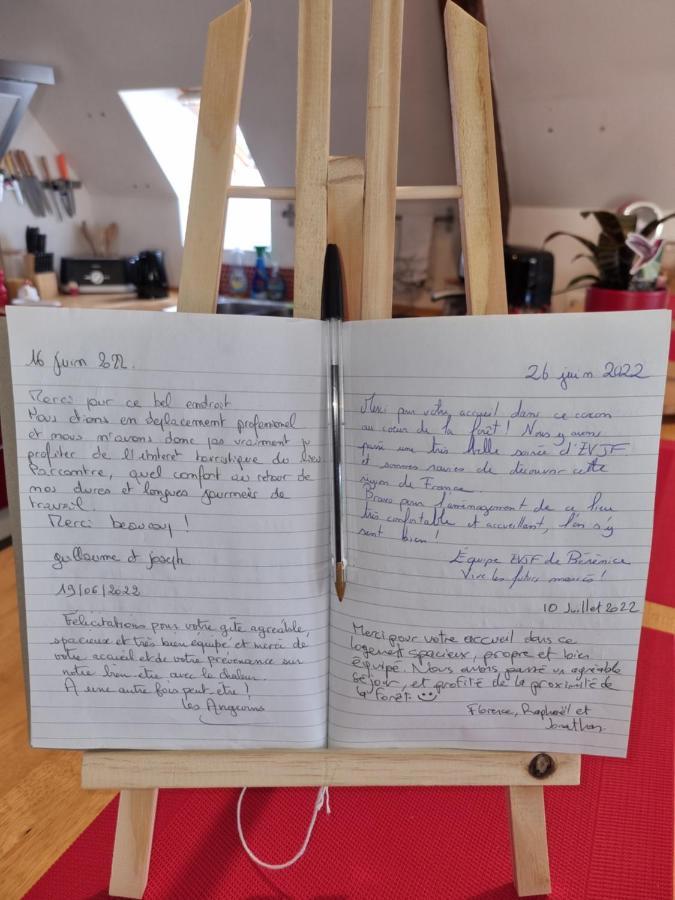 16 juin 2022.
Merci pour ce bel endroit
Nous étions en déplacement professionnel
et nous n'avons donc pas vraiment pu
profiter de l'intérêt touristique du lieu
Par contre, quel confort au retour de
nos dures et longues journées de
travail.
Merci beaucoup !
guillaume et joseph
19/06/2022
Félicitations pour votre gîte agréable,
spacieux et très bien équipé et merci de
votre accueil et de votre prévenance sur
notre bien être avec la chaleur.
À une autre fois peut-être !
Les Angevins
26 juin 2022
Merci pour votre accueil dans ce cocon
au cœur de la forêt ! Nous y avons
passé une très belle soirée d'EVJF
et sommes ravies de découvrir cette
région de France.
Bravo pour l'aménagement de ce lieu
très confortable et accueillant, l'on s'y
sent bien !
Équipe EVJF de Bérénice
Vive les futurs mariés !
10 Juillet 2022
Merci pour votre accueil dans ce
logement spacieux, propre et bien
équipé. Nous avons passé un agréable
séjour, et profité de la proximité de
la forêt. ☺
Florence, Raphaël et
Jonathan.